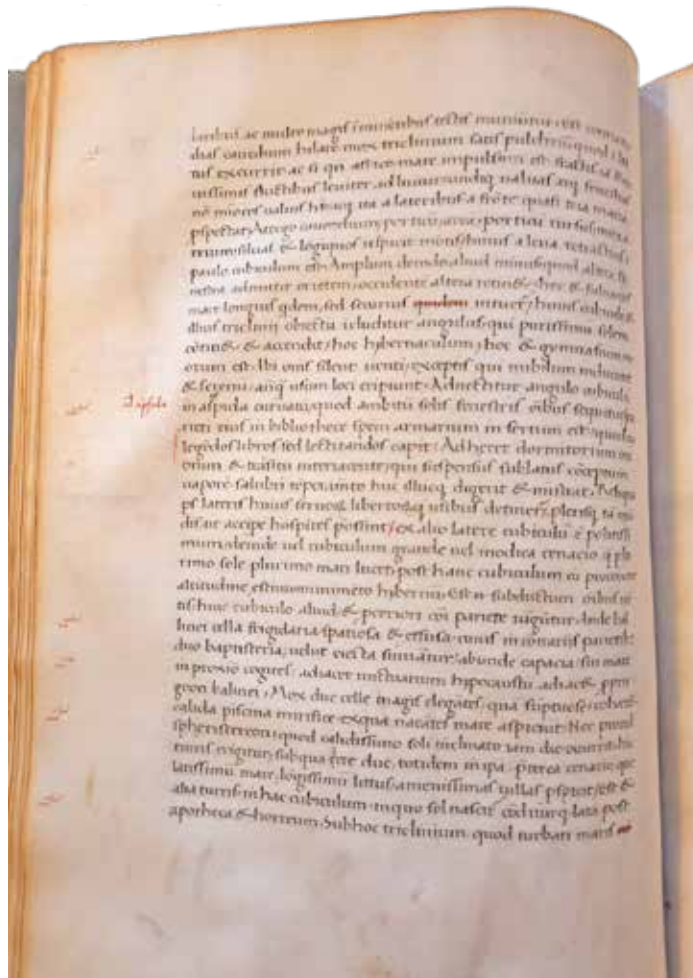 laribus ac multo magis iminentibus tectis muniuntur est contra me
dias cavedium hilare mox triclinium satis pulchrum quod i li
tus excurrit ac si qn africo mare impulsum est fractis ia
nissimis fluctibus leuiter adluitur undiq ualuas aut fenestras
nō minores ualuis h; atq ita a lateribus a frōte quasi tria maria
pspectat, A tergo cauedium, porticū, area, porticū rursus mox a
trium siluas & lōgiquos respicit montes huius a leua retractius
paulo cubiculum est Amplum deinde aliud minus quod altera fe
nestra admittit orientem, occidente altera retin& hec &
mare longius qdem, sed securius quidem intuet, huius cubiculi &
illius triclinij obiectu icluditur angulus qui purissimu solem
cōtin& & accendit, hoc hybernaculum, hoc & gymnasium me
orum est Ibi oms silent uenti exceptis qui nubilum inducunt
& serenu anq usum loci eripiunt, Adnectitur angulo cubiculū
I apsida
in aspida curuatu, quod ambitū solis fenestris oibus sequitur, pa
rieti eius in bibliothece spem armarium in sertum est quod nō
legēdos libros sed lectitandos capit, Adheret dormitorium m
brum & trāsitu interiacente, qui suspensus & tublatus cōceptum
uaporē salubri teperamto huc illucq digerit & mistrat, Reliqua
ps lateris huius seruo℞ libertor℞q usibus detinet, plerisq ta mū
dis ut accipe hospites possint, ex alio latere cubiculū ē politissi
mum, deinde uel cubiculum grande uel modica cenacio q plu
rimo sole plurimo mari lucet, post hanc cubiculum cū procoeto
altitudine estiuum munimento hybernu Est n subductum oibus uē
tis huic cubiculo aliud & procoeton cōi pariete iugitur Inde bal
linei cella frigidaria spatiosa & effusa, cuius in cōtrariis parietib;
duo baptisteria, uelut eiecta sinuātur, abunde capacia, si mare
in proxīo cogites, adiacet unctuarium hypocaustu adiac& ppni
geon balinei, Mox due celle magis elegātes, qua sūptuose, coheret
calida piscina mirifice ex qua natātes mare aspiciūt Nec procul
spheristerion, quod calidissimo soli inclinato iam die occurrit, hic
turris erigitur, sub qua diete due, totidem in ipa, preterea cenacio que
latissimū mare, lōgissimū littus, amenissimas uillas pspicit, est &
alia turris in hac cubiculum in quo sol nascit cōditurq, lata post
apotheca & horreum, Sub hoc triclinium quod turbati maris